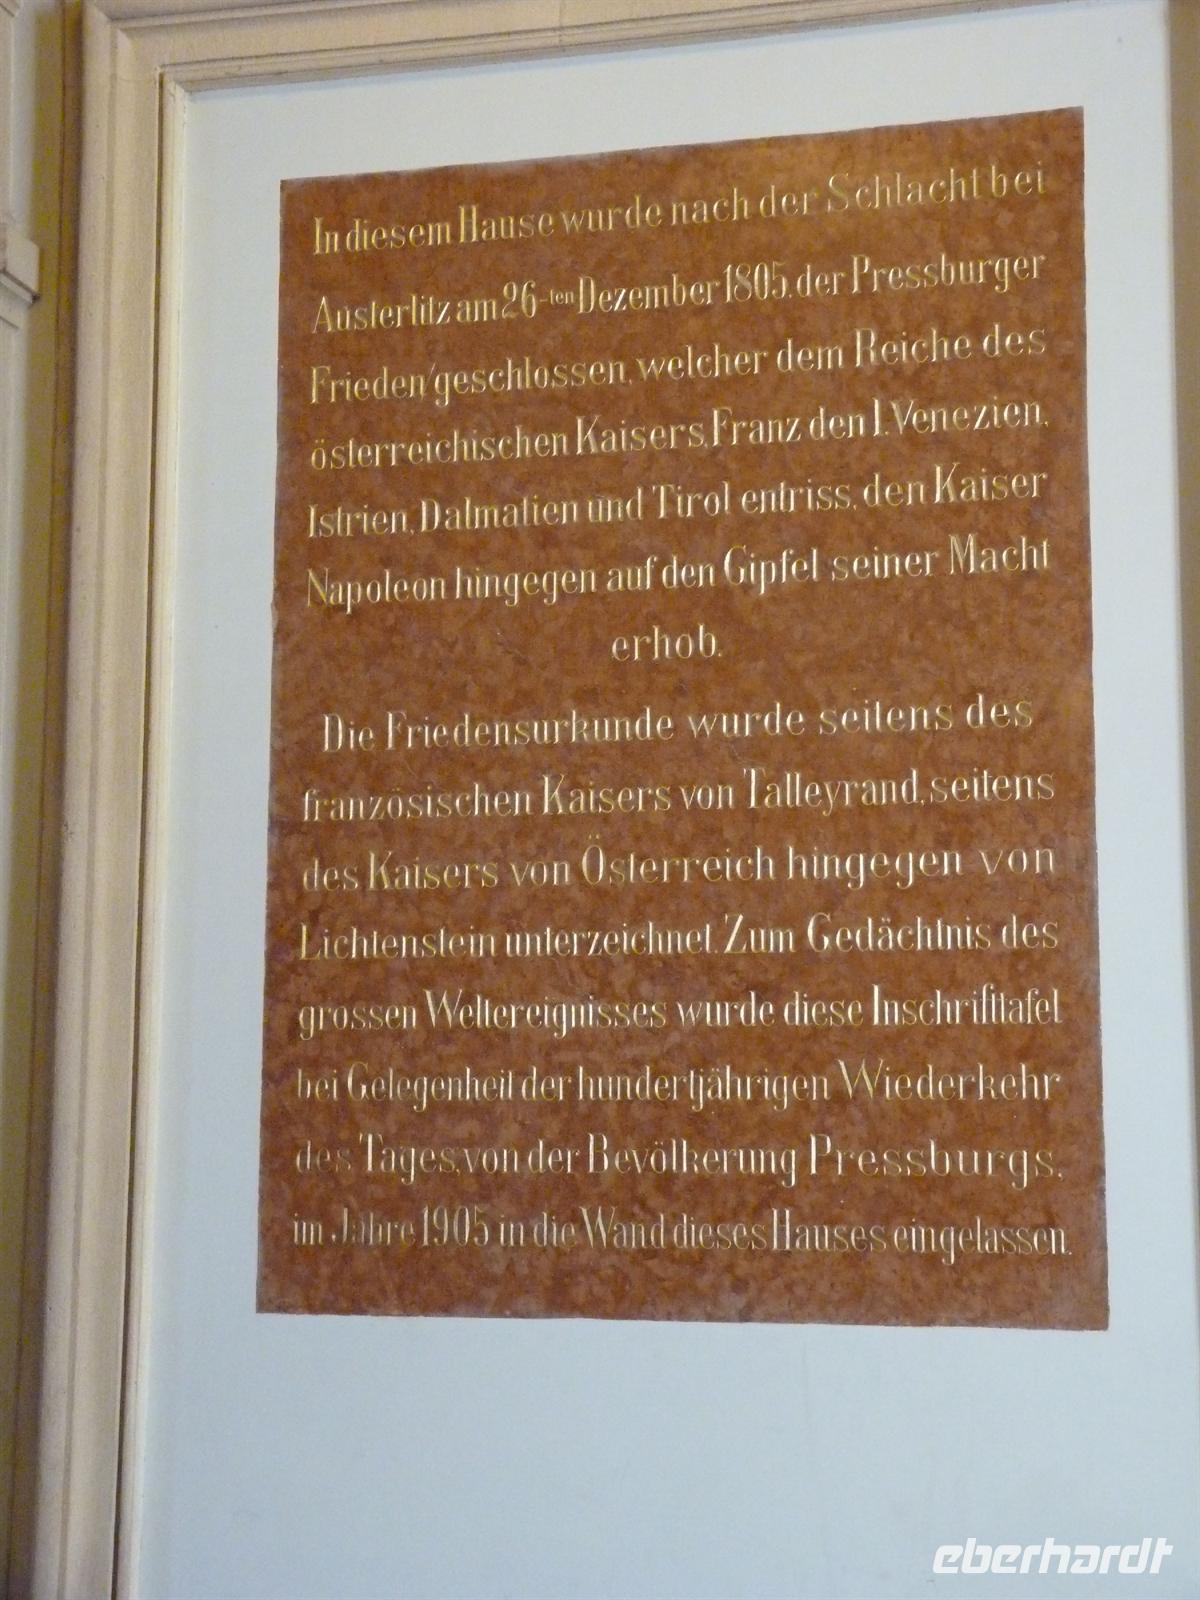 In diesem Hause wurde nach der Schlacht bei
Austerlitz am 26-ten Dezember 1805. der Pressburger
Frieden geschlossen, welcher dem Reiche des
österreichischen Kaisers, Franz den I. Venezien,
Istrien, Dalmatien und Tirol entriss, den Kaiser
Napoleon hingegen auf den Gipfel seiner Macht
erhob.
Die Friedensurkunde wurde seitens des
französischen Kaisers von Talleyrand, seitens
des Kaisers von Österreich hingegen von
Lichtenstein unterzeichnet. Zum Gedächtnis des
grossen Weltereignisses wurde diese Inschrifttafel
bei Gelegenheit der hundertjährigen Wiederkehr
des Tages, von der Bevölkerung Pressburgs,
im Jahre 1905 in die Wand dieses Hauses eingelassen.
eberhardt